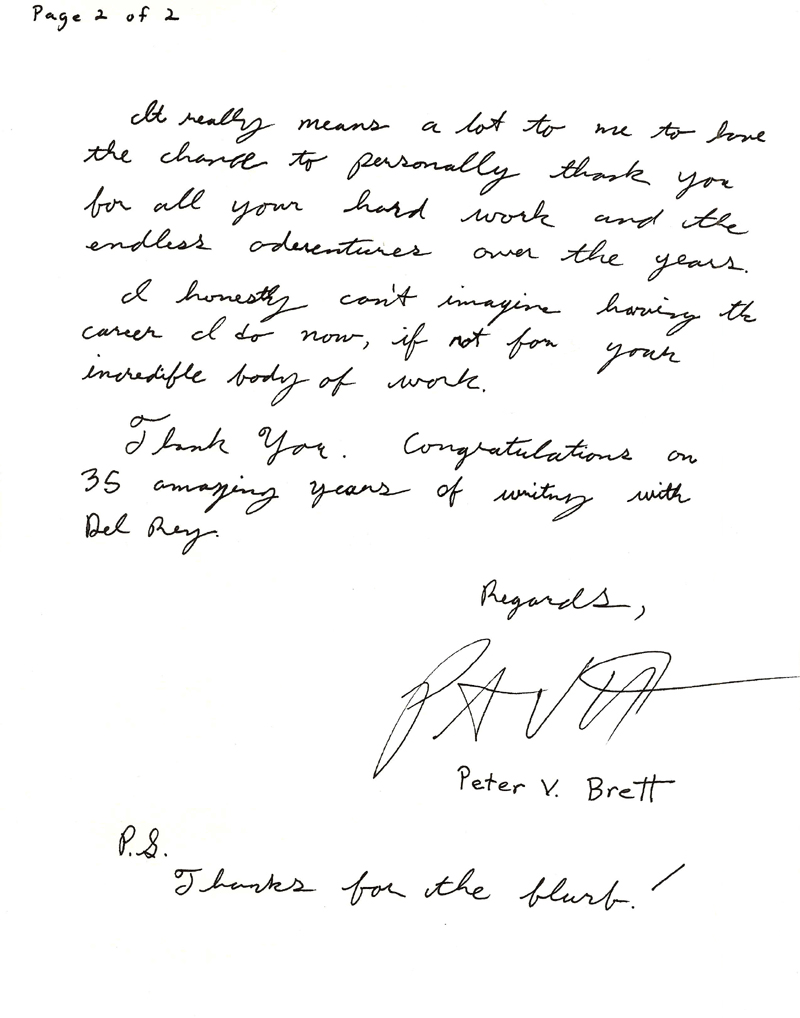 Page 2 of 2
It really means a lot to me to have
the chance to personally thank you
for all your hard work and the
endless adventures over the years.
I honestly can't imagine having the
career I do now, if not for your
incredible body of work.
Thank You. Congratulations on
35 amazing years of writing with
Del Rey.
Regards,
Peter V. Brett
P.S.
Thanks for the blurb!